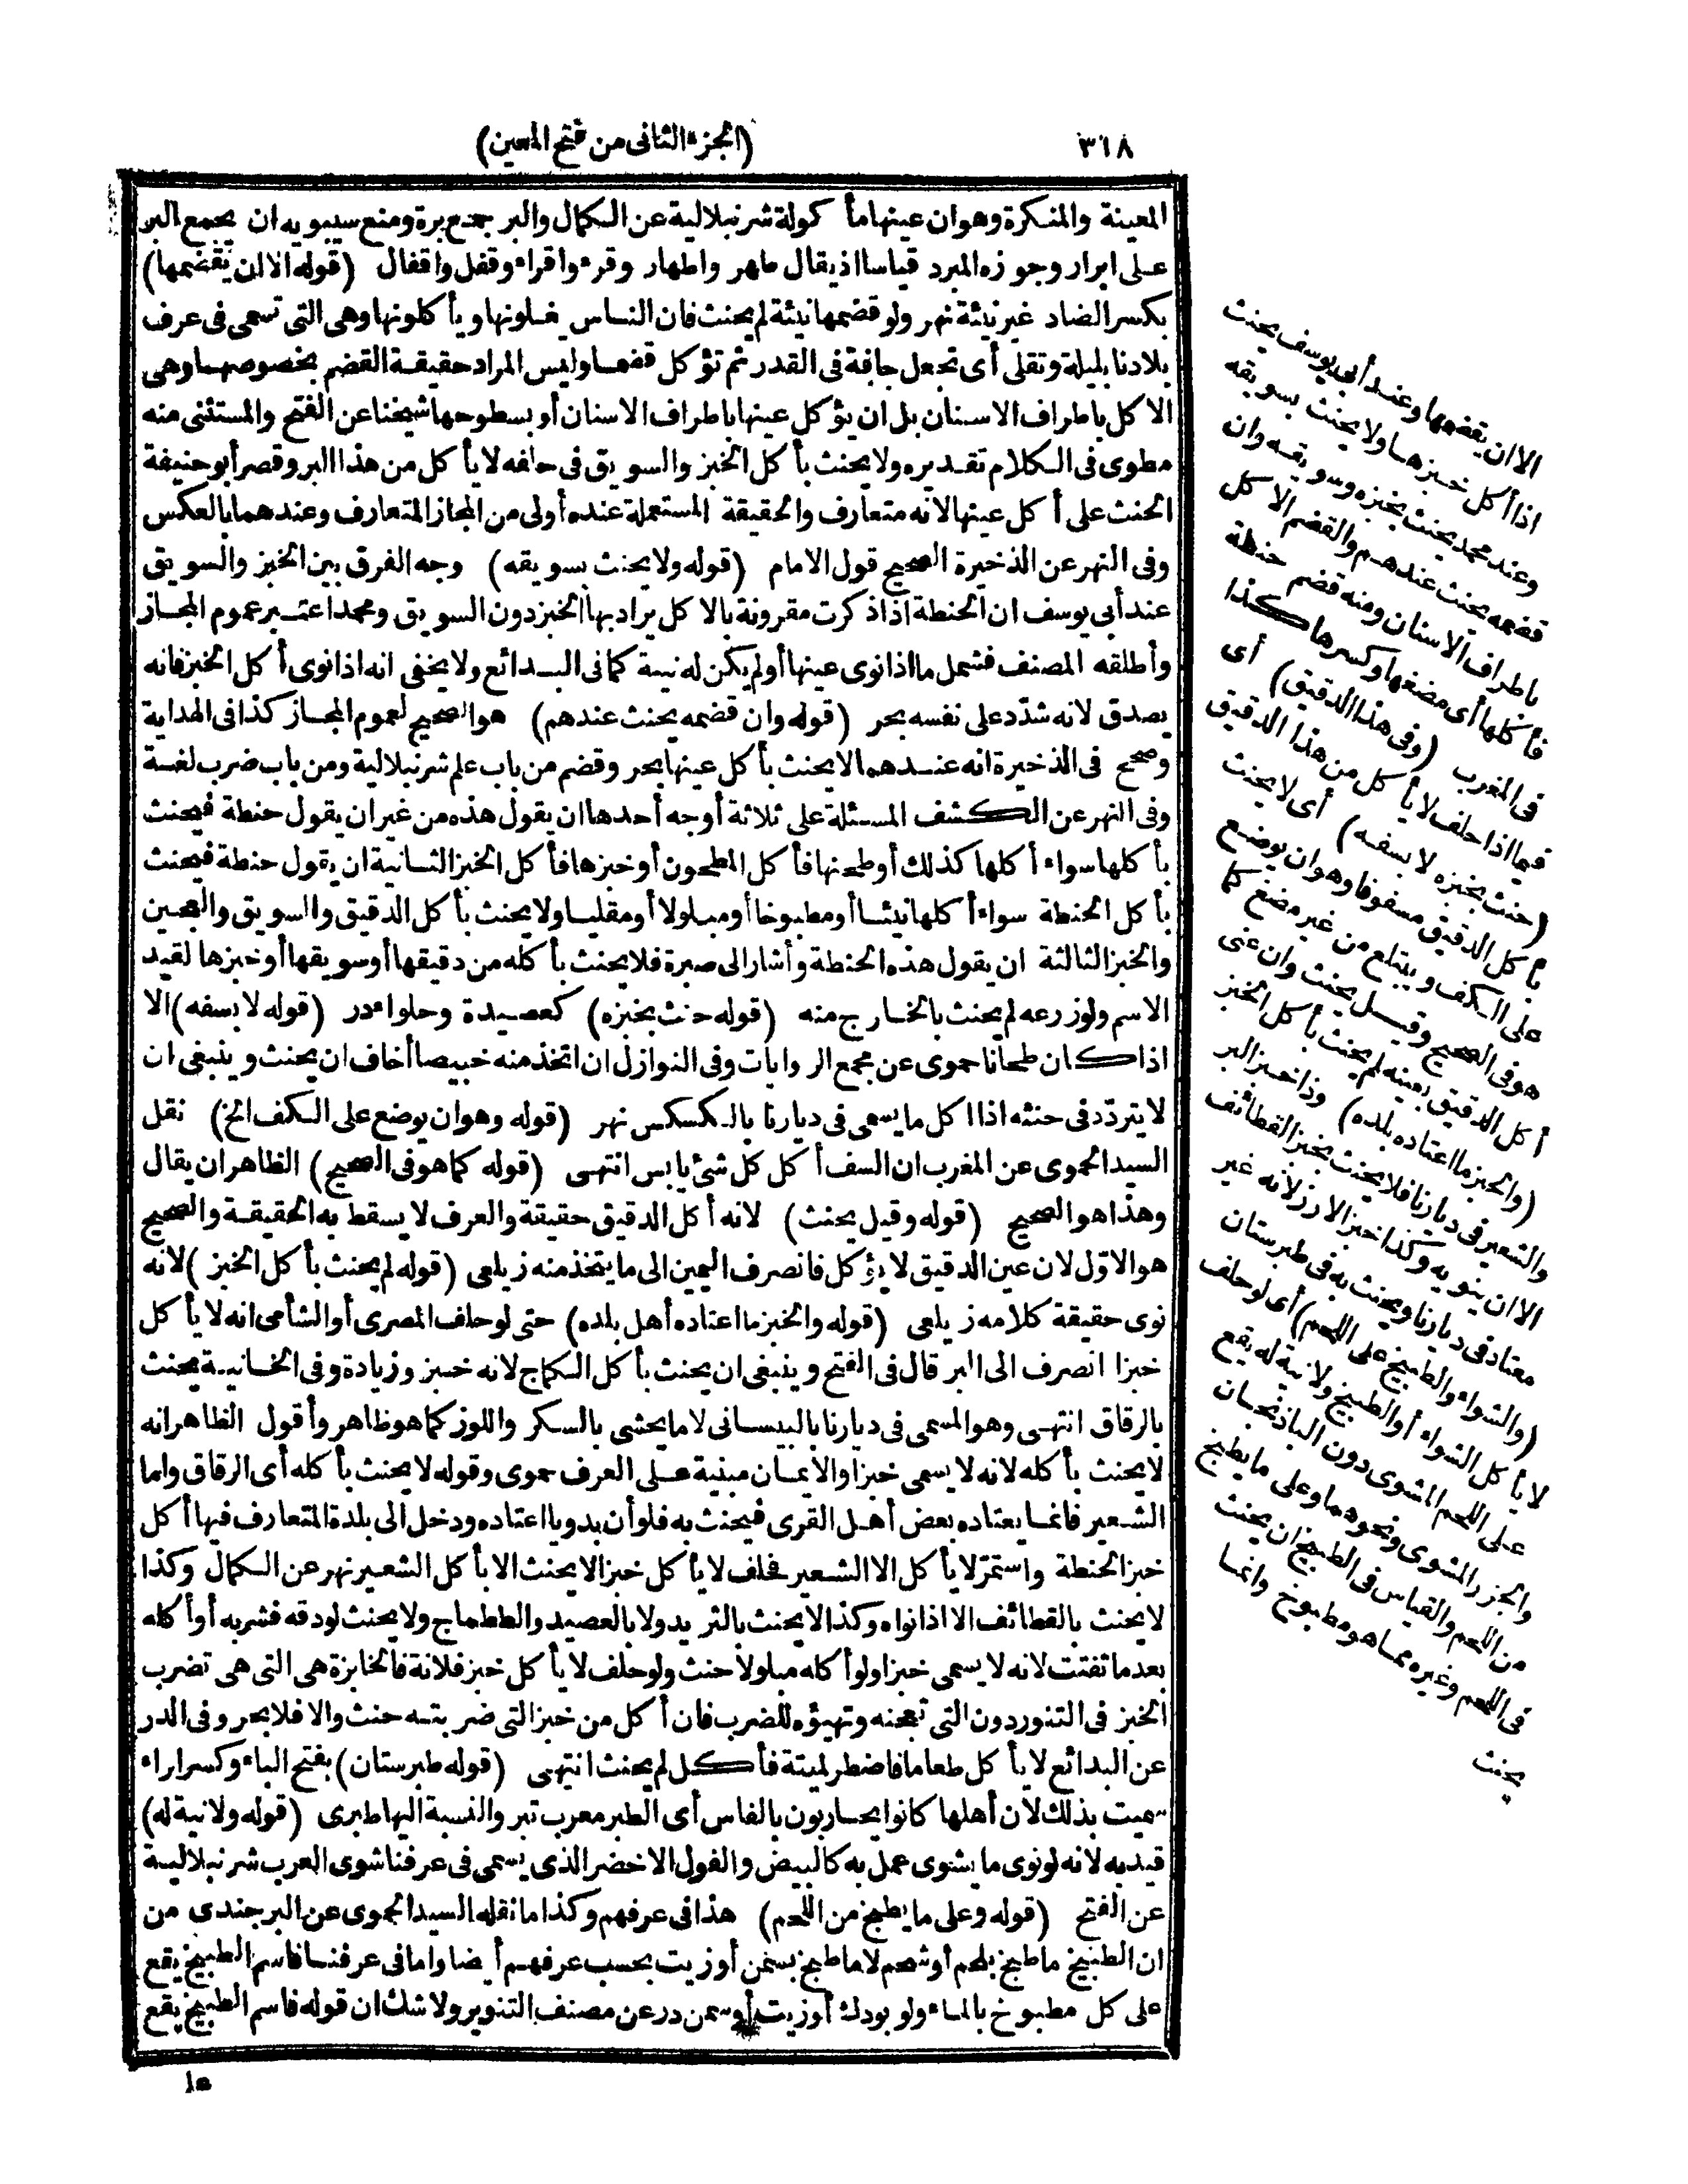 ٣١٨
(الجزء الثانى من فتح المعين)
المعينة والمنكرة وهوان عينها مأ كولة شرنبلالية عن الكمال والبر جمع برة ومنع سيبويه ان يجمع البر
على ابرار وجوزه المبرد قياسا اذ يقال طهر واطهار وقرء واقراء وقفل واقفال (قوله الا ان تقضمها)
بكسر الضاد غير نيئة نهر ولو قضمها نيئة لم يحنث فان الناس يغلونها ويأكلونها وهى التى تسمى فى عرف
بلادنا بليلة وتقلى أى تجعل جافة فى القدر ثم تؤكل قضما وليس المراد حقيقة القضم بخصوصها وهى
الا كل باطراف الاسنان بل ان يؤكل عينها باطراف الاسنان أو بسطوحها شيخنا عن الفتح والمستثنى منه
مطوى فى الكلام تقديره ولا يحنث بأكل الخبز والسويق فى حلفه لا يأكل من هذا البر وقصر أبو حنيفة
الحنث على أكل عينها لانه متعارف والحقيقة المستعملة عنده أولى من المجاز المتعارف وعندهما بالعكس
وفى النهر عن الذخيرة الصحيح قول الامام (قوله ولا يحنث بسويقه) وجه الفرق بين الخبز والسويق
عند أبي يوسف ان الحنطة اذا ذكرت مقرونة بالاكل يراد بها الخبز دون السويق ومحمد اعتبر عموم المجاز
وأطلقه المصنف فشمل ما اذا نوى عينها أو لم يكن له نية كما فى البدائع ولا يخفى انه اذا نوى أكل الخبز فانه
يصدق لانه شدّد على نفسه بحر (قوله وان قضمه يحنث عندهم) هو الصحيح لعموم المجاز كذا فى الهداية
وصحح فى الذخيرة انه عندهما لا يحنث بأكل عينها بحر وقضم من باب علم شرنبلالية ومن باب ضرب لغة
وفى النهر عن الكشف المسئلة على ثلاثة أوجه أحدها ان يقول هذه من غير ان يقول حنطة فيحنث
بأكلها سواء أكلها كذلك أو طحنها فأكل المطحون أو خبزها فأكل الخبز الثانية ان يقول حنطة فيحنث
بأكل الحنطة سواء أكلها نيئا أو مطبوخا أو مبلولا أو مقليا ولا يحنث بأكل الدقيق والسويق والعجين
والخبز الثالثة ان يقول هذه الحنطة وأشار الى صبرة فلا يحنث بأكله من دقيقها أو سويقها أو خبزها لقيد
الاسم ولو زرعه لم يحنث بالخارج منه (قوله حنث بخبزه) كعصيدة وحلواء در (قوله لا بسفه) الا
اذا كان طحانا حموى عن مجمع الروايات وفى النوازل ان اتخذ منه خبيصا أخاف ان يحنث وينبغى ان
لا يتردّد فى حنثه اذا اكل ما يسمى فى ديارنا بالكسكس نهر (قوله وهو ان يوضع على الكف الخ) نقل
السيد الحموى عن المغرب ان السف أكل كل شئ يابس انتهى (قوله كما هو فى الصحيح) الظاهر ان يقال
وهذا هو الصحيح (قوله وقيل يحنث) لانه أكل الدقيق حقيقة والعرف لا يسقط به الحقيقة والصحيح
هو الاوّل لان عين الدقيق لا يؤكل فانصرف اليمين الى ما يتخذ منه زيلعى (قوله لم يحنث بأكل الخبز) لانه
نوى حقيقة كلامه زيلعى (قوله والخبز ما اعتاده أهل بلده) حتى لو حلف المصرى أو الشأمى انه لا يأكل
خبزا انصرف الى البر قال فى الفتح وينبغى ان يحنث بأكل الكماج لانه خبز وزيادة وفى الخانية يحنث
بالرقاق انتهى وهو المسمى فى ديارنا بالبيسانى لا ما يحشى بالسكر واللوز كما هو ظاهر وأقول الظاهر انه
لا يحنث بأكله لانه لا يسمى خبزا والايمان مبنية على العرف حموى وقوله لا يحنث بأكله أى الرقاق واما
الشعير فانما يعتاده بعض أهل القرى فيحنث به فلو أن بدويا اعتاده ودخل الى بلدة المتعارف فيها أكل
خبز الحنطة واستمرّ لا يأكل الا الشعير فحلف لا يأكل خبزا لا يحنث الا بأكل الشعير نهر عن الكمال وكذا
لا يحنث بالقطائف الا اذا نواه وكذا لا يحنث بالثريد ولا بالعصيد والططماج ولا يحنث لو دقه فشربه أو أكله
بعد ما تفتت لانه لا يسمى خبزا ولو أكله مبلولا حنث ولو حلف لا يأكل خبز فلانة فالخابزة هى التى هى تضرب
الخبز فى التنور دون التى تعجنه وتهيؤه للضرب فان أكل من خبز التى ضربته حنث والا فلا بحر وفى الدر
عن البدائع لا يأكل طعاما فاضطر لميتة فأكل لم يحنث انتهى (قوله طبرستان) بفتح الباء وكسر اراء
سميت بذلك لان أهلها كانوا يحاربون بالفاس أى الطبر معرب تبر والنسبة اليها طبرى (قوله ولا نية له)
قيد به لانه لو نوى ما يشوى عمل به كالبيض والفول الاخضر الذى يسمى فى عرفنا شوى العرب شرنبلالية
عن الفتح (قوله وعلى ما يطبخ من اللحم) هذا فى عرفهم وكذا ما نقله السيد الحموى عن البرجندى من
ان الطبيخ ما طبخ بلحم أو شحم لا ما طبخ بسمن أو زيت بحسب عرفهم أيضا واما فى عرفنا فاسم الطبيخ يقع
على كل مطبوخ بالماء ولو بودك أو زيت أو سمن در عن مصنف التنوير ولا شك ان قوله فاسم الطبيخ يقع
الا ان يقضمها وعند أبى يوسف يحنث
اذا أكل خبزها ولا يحنث بسويقه
وعند محمد يحنث بخبزه وسويقه وان
قضمه يحنث عندهم والقضم الاكل
باطراف الاسنان ومنه قضم حنطة
فأكلها أى مضغها وكسرها كذا
فى المغرب (وفى هذا الدقيق) أى
فيما اذا حلف لا يأكل من هذا الدقيق
(حنث بخبزه لا بسفه) أى لا يحنث
بأكل الدقيق مسفوفا وهو ان يوضع
على الكف ويبتلع من غير مضغ كما
هو فى الصحيح وقيل يحنث وان عنى
أكل الدقيق بعينه لم يحنث بأكل الخبز
(والخبز ما اعتاده بلده) وذا خبز البر
والشعير فى ديارنا فلا يحنث بخبز القطائف
الا ان ينويه وكذا خبز الارز لانه غير
معتاد فى ديارنا ويحنث به فى طبرستان
(والشواء والطبيخ على اللحم) أى لو حلف
لا يأكل الشواء أو الطبيخ ولا نية له يقع
على اللحم المشوى دون الباذنجان
والجزر المشوى ونحوهما وعلى ما يطبخ
من اللحم والقياس فى الطبيخ ان يحنث
فى اللحم وغيره مما هو مطبوخ وانما
يحنث